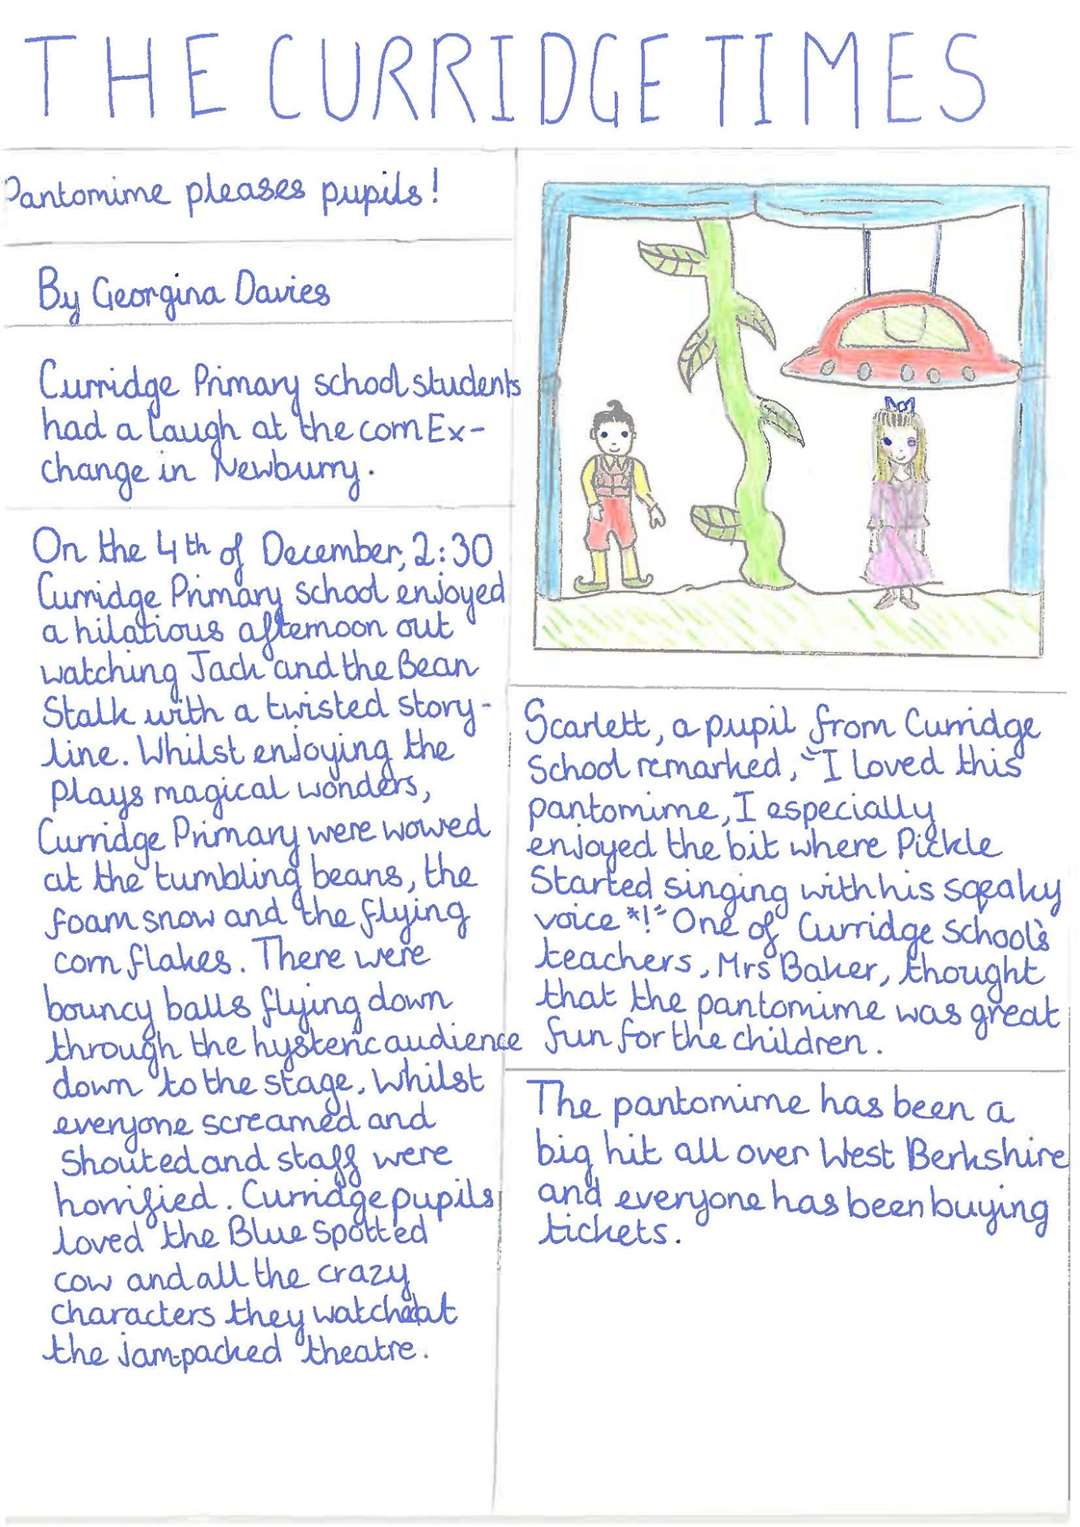 THE CURRIDGE TIMES
Pantomime pleases pupils!
By Georgina Davies
Curridge Primary school students
had a laugh at the corn Ex-
change in Newburry.
On the 4th of December, 2:30
Curridge Primary school enjoyed
a hilatious afternoon out
watching Jack and the Bean
Stalk with a twisted story-
line. Whilst enjoying the
plays magical wonders,
Curridge Primary were wowed
at the tumbling beans, the
foam snow and the flying
corn flakes. There were
bouncy balls flying down
through the hysteric audience
down to the stage, Whilst
everyone screamed and
Shouted and staff were
horrified. Curridge pupils
loved the Blue Spotted
cow and all the crazy
characters they watched at
the jam-packed theatre.
Scarlett, a pupil from Curridge
School remarked, "I loved this
pantomime, I especially
enjoyed the bit where Pickle
Started singing with his sqeaky
voice *!" One of Curridge School's
teachers, Mrs Baker, thought
that the pantomime was great
fun for the children.
The pantomime has been a
big hit all over West Berkshire
and everyone has been buying
tickets.